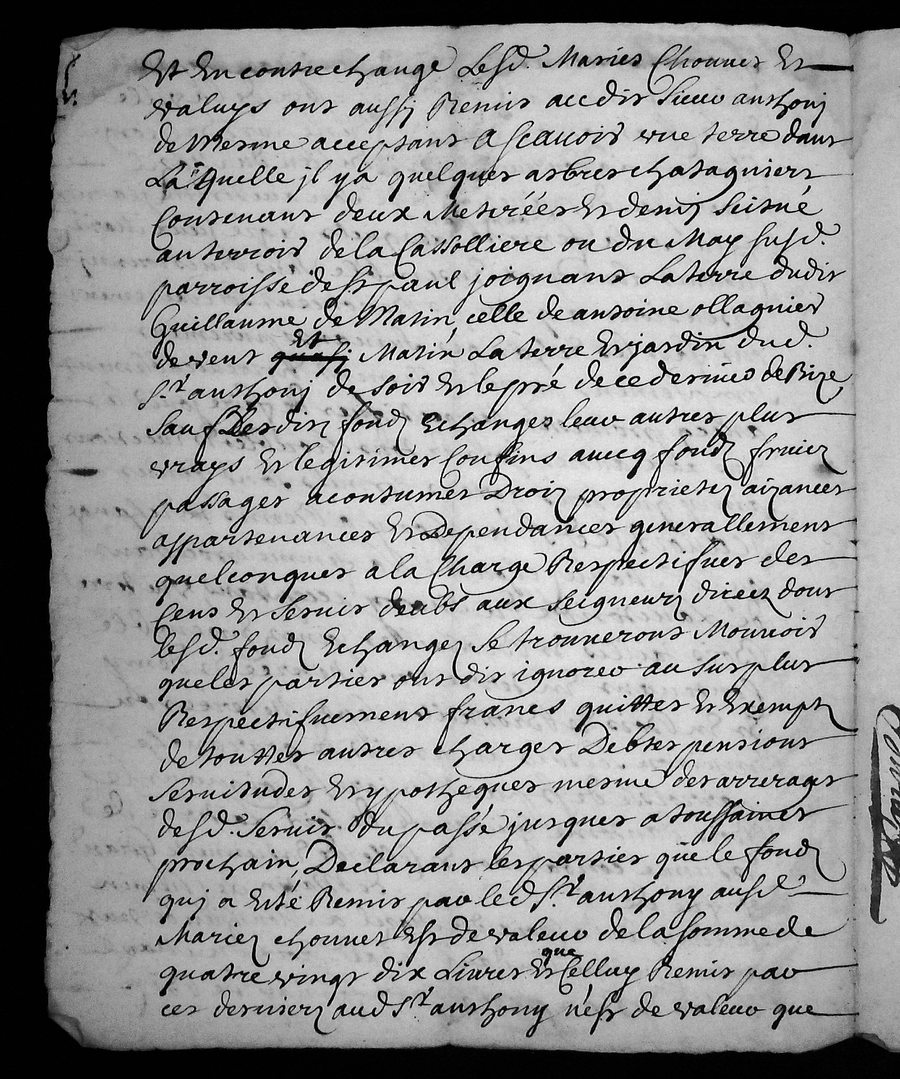 Et En contrechange Lesd. Mariés Chonnet Et
valuys ont aussj Remis audit Sieur anthonj
de Mesme acceptant A scavoir une terre dans
Laquelle jl y a quelques arbres chatagniers
Contenant deux Meterées Et demij Scitué
au terroir de la Cassolliere ou du May susd.
parroisse de st paul joignant La terre dudit
Guillaume de Matin, celle de antoine ollagnier
de vent Et Matin La terre Et jardin dud.
Sr. anthonj de soir Et le pré de ce dernier de Bize
Sauf Desdits fonds Echanges leur autres plus
vrays Et legitimes Confins avecq fonds fruicts
passages acoutumés Droits proprietes aizances
appartenances Et Dependances generallement
quelconques a la Charge Respectifues des
Cens Et Servis deubs aux Seigneurs directs dont
lesd. fonds Echanges Se trouueront Mouuoir
que les parties ont dit ignorer au Surplus
Respectifuement francs quittes Et Exempts
de touttes autres charges Debtes pensions
Seruitudes Et ypotheques mesme des arrerages
desd. Servis du passé jusques a toussaints
prochain, Declarant les parties que le fonds
quj a Esté Remis par le d. Sr. anthony ausd.
Mariez chonnet Est de valeur de la somme de
quatre vingt dix Livres Et que Celluy Remis par
ces derniers aud Sr. anthony n'est de valeur que